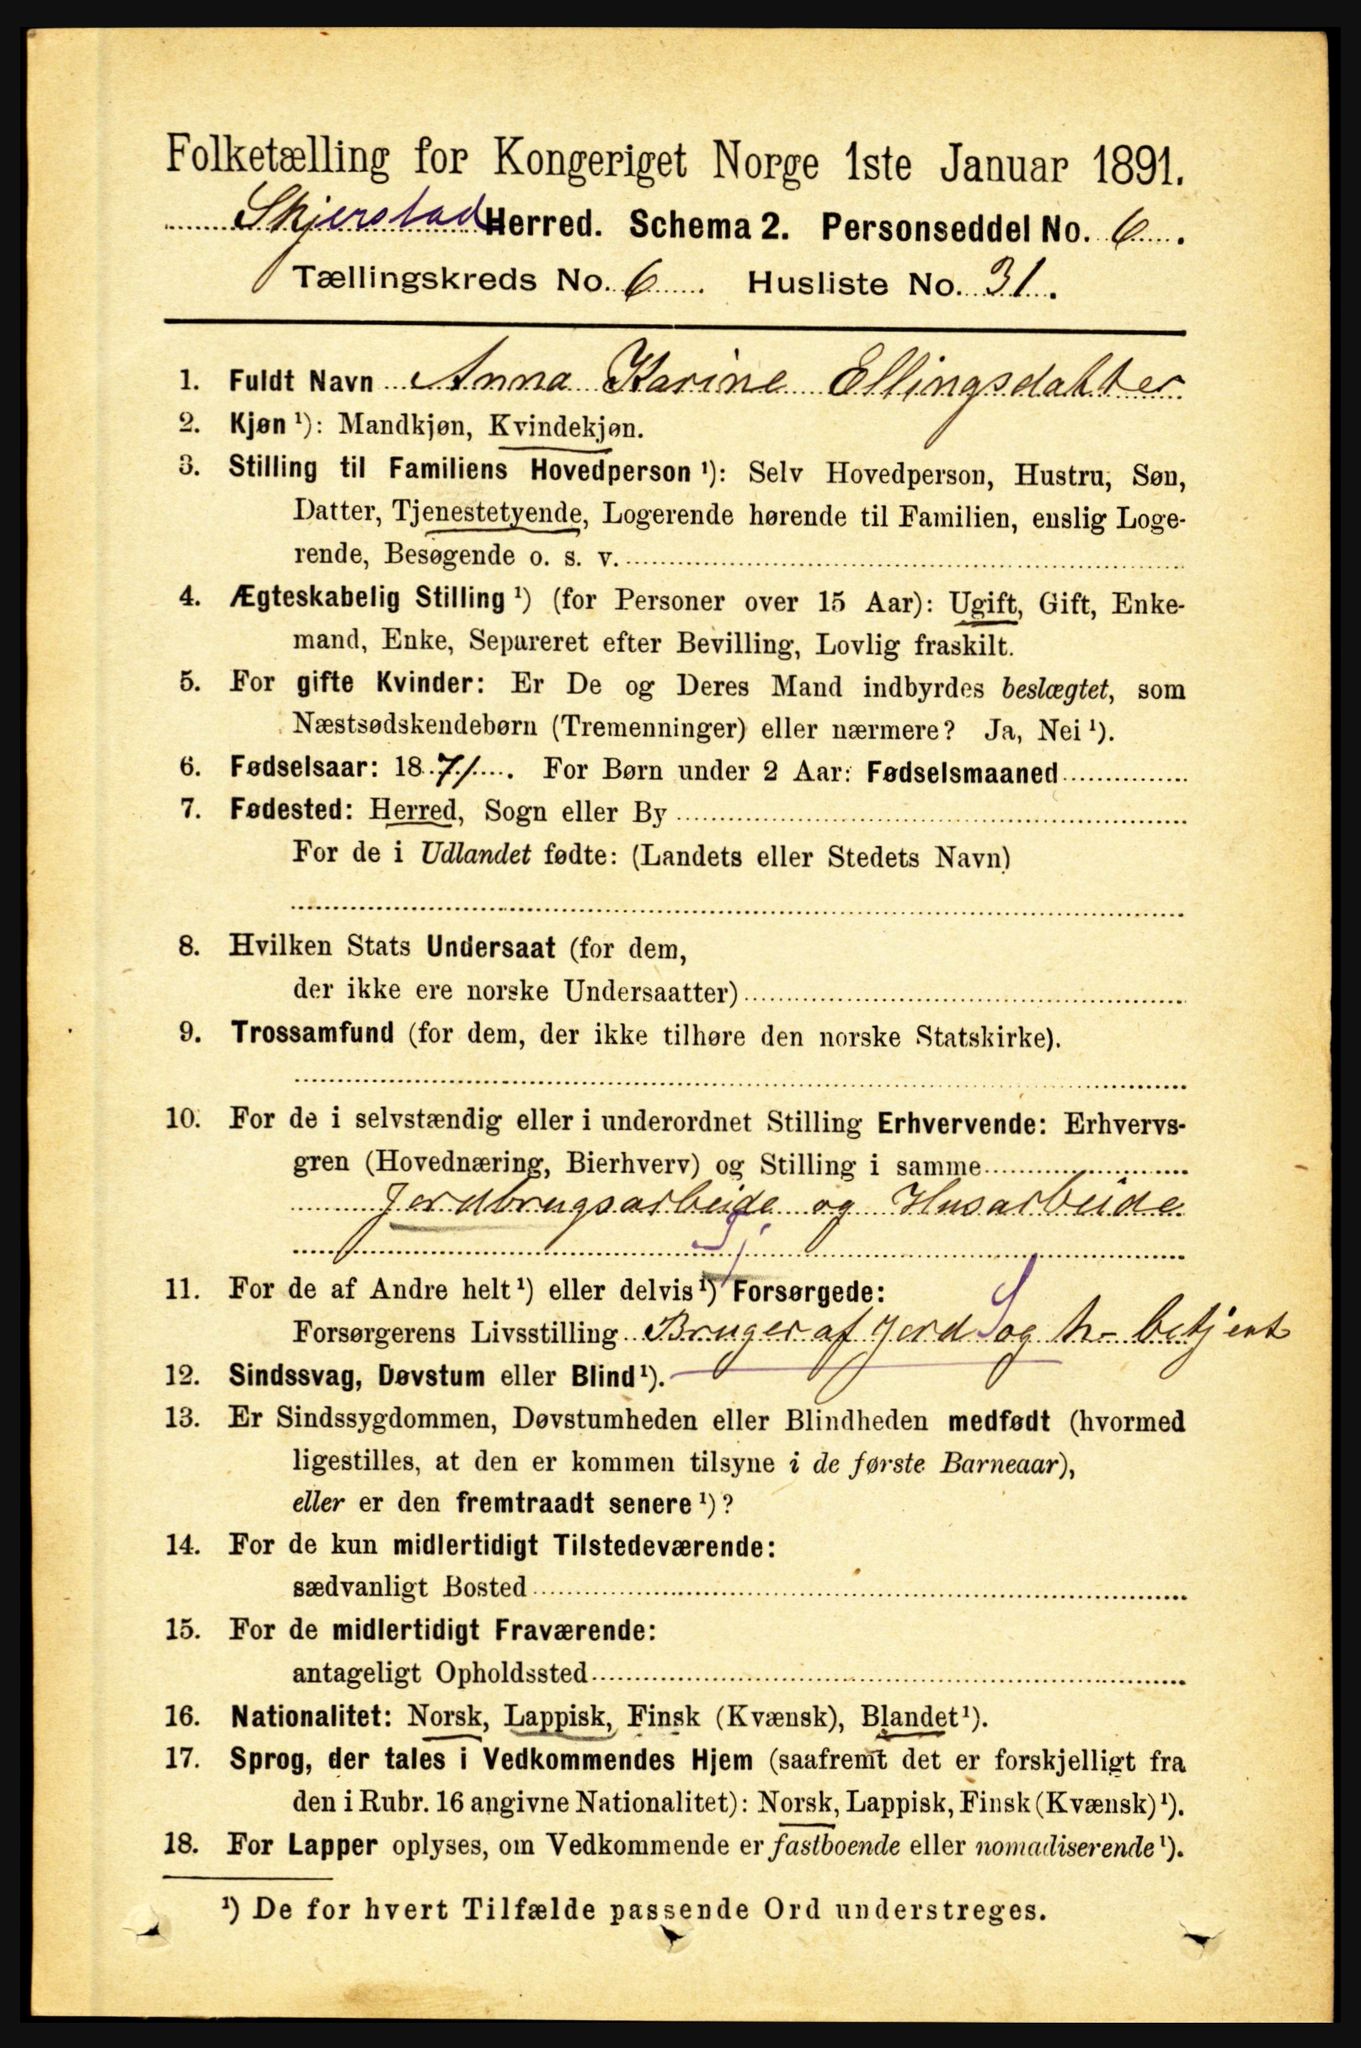 Folketælling for Kongeriget Norge 1ste Januar 1891.
Skjerstad Herred. Schema 2. Personseddel No. 6.
Tællingskreds No. 6. Husliste No. 31.
1. Fuldt Navn Anna Karine Ellingsdatter
2. Kjøn ¹): Mandkjøn, Kvindekjøn.
3. Stilling til Familiens Hovedperson ¹): Selv Hovedperson, Hustru, Søn,
Datter, Tjenestetyende, Logerende hørende til Familien, enslig Loge-
rende, Besøgende o. s. v.
4. Ægteskabelig Stilling ¹) (for Personer over 15 Aar): Ugift, Gift, Enke-
mand, Enke, Separeret efter Bevilling, Lovlig fraskilt.
5. For gifte Kvinder: Er De og Deres Mand indbyrdes beslægtet, som
Næstsødskendebørn (Tremenninger) eller nærmere? Ja, Nei ¹).
6. Fødselsaar: 1871. For Børn under 2 Aar: Fødselsmaaned
7. Fødested: Herred, Sogn eller By
For de i Udlandet fødte: (Landets eller Stedets Navn)
8. Hvilken Stats Undersaat (for dem,
der ikke ere norske Undersaatter)
9. Trossamfund (for dem, der ikke tilhøre den norske Statskirke).
10. For de i selvstændig eller i underordnet Stilling Erhvervende: Erhvervs-
gren (Hovednæring, Bierhverv) og Stilling i samme
Jordbrugsarbeide og Husarbeide
11. For de af Andre helt ¹) eller delvis ¹) Forsørgede:
Forsørgerens Livsstilling Bruger af Jord og h- betjent
12. Sindssvag, Døvstum eller Blind ¹).
13. Er Sindssygdommen, Døvstumheden eller Blindheden medfødt (hvormed
ligestilles, at den er kommen tilsyne i de første Barneaar),
eller er den fremtraadt senere ¹)?
14. For de kun midlertidigt Tilstedeværende:
sædvanligt Bosted
15. For de midlertidigt Fraværende:
antageligt Opholdssted
16. Nationalitet: Norsk, Lappisk, Finsk (Kvænsk), Blandet ¹).
17. Sprog, der tales i Vedkommendes Hjem (saafremt det er forskjelligt fra
den i Rubr. 16 angivne Nationalitet): Norsk, Lappisk, Finsk (Kvænsk) ¹).
18. For Lapper oplyses, om Vedkommende er fastboende eller nomadiserende ¹).
¹) De for hvert Tilfælde passende Ord understreges.